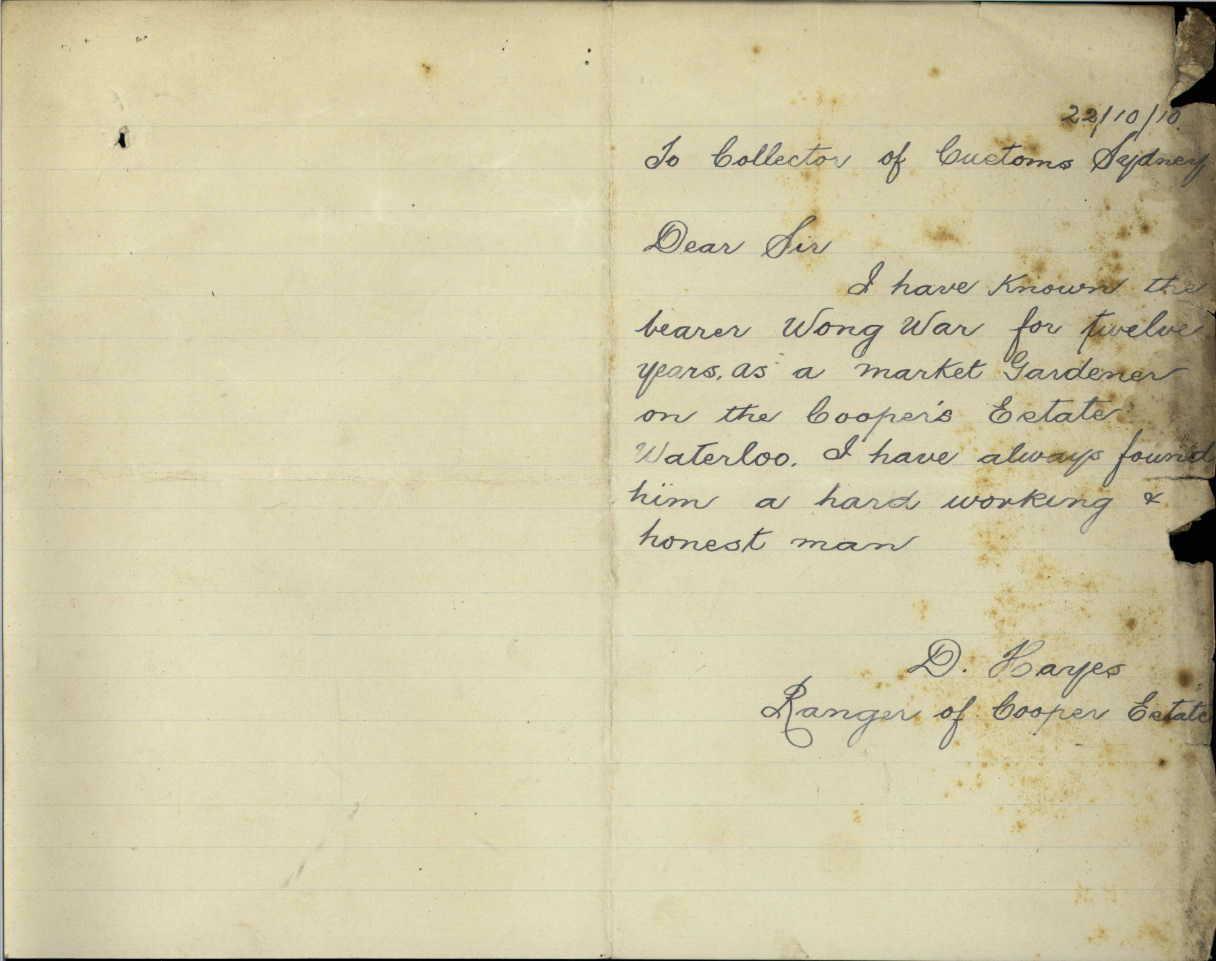 22/10/10
To Collector of Customs Sydney
Dear Sir
I have Known the
bearer Wong War for twelve
years, as a market Gardener
on the Cooper's Estate
Waterloo. I have always found
him a hard working &
honest man
D. Hayes
Ranger of Cooper Estate